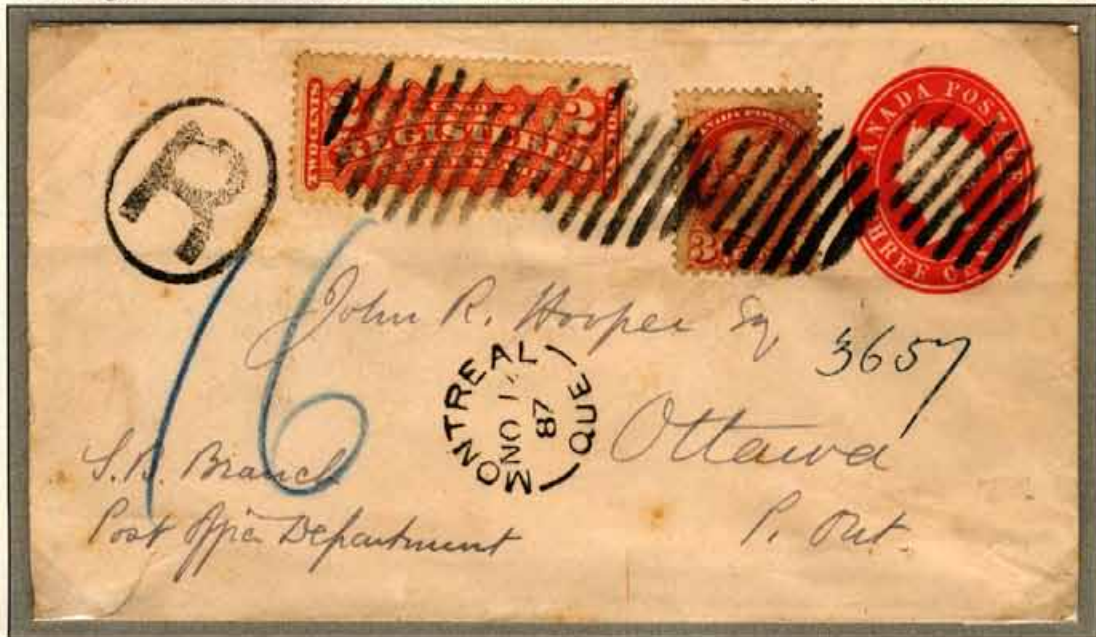 R
TWO CENTS 2 REGISTERED 2
3
CANADA POSTAGE
THREE
16
John R. Hooper Esq
3657
MONTREAL QUE
NO 1
87
Ottawa
S.B. Branch
Post Office Department
P. Ont.